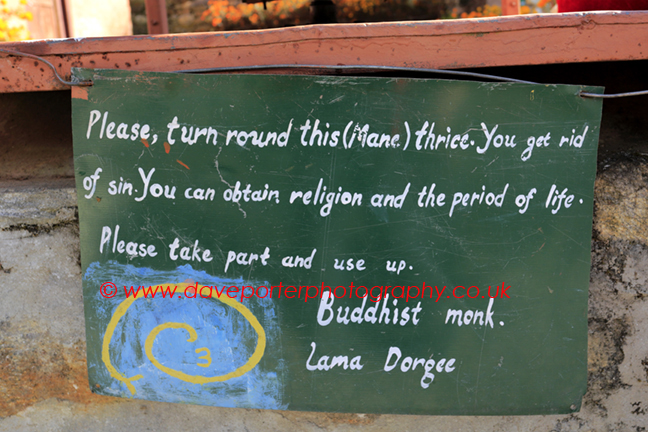 Please, turn round this (Mane) thrice. You get rid
of sin. You can obtain religion and the period of life.
Please take part and use up.
© www.daveporterphotography.co.uk
Buddhist monk.
Lama Dorgee